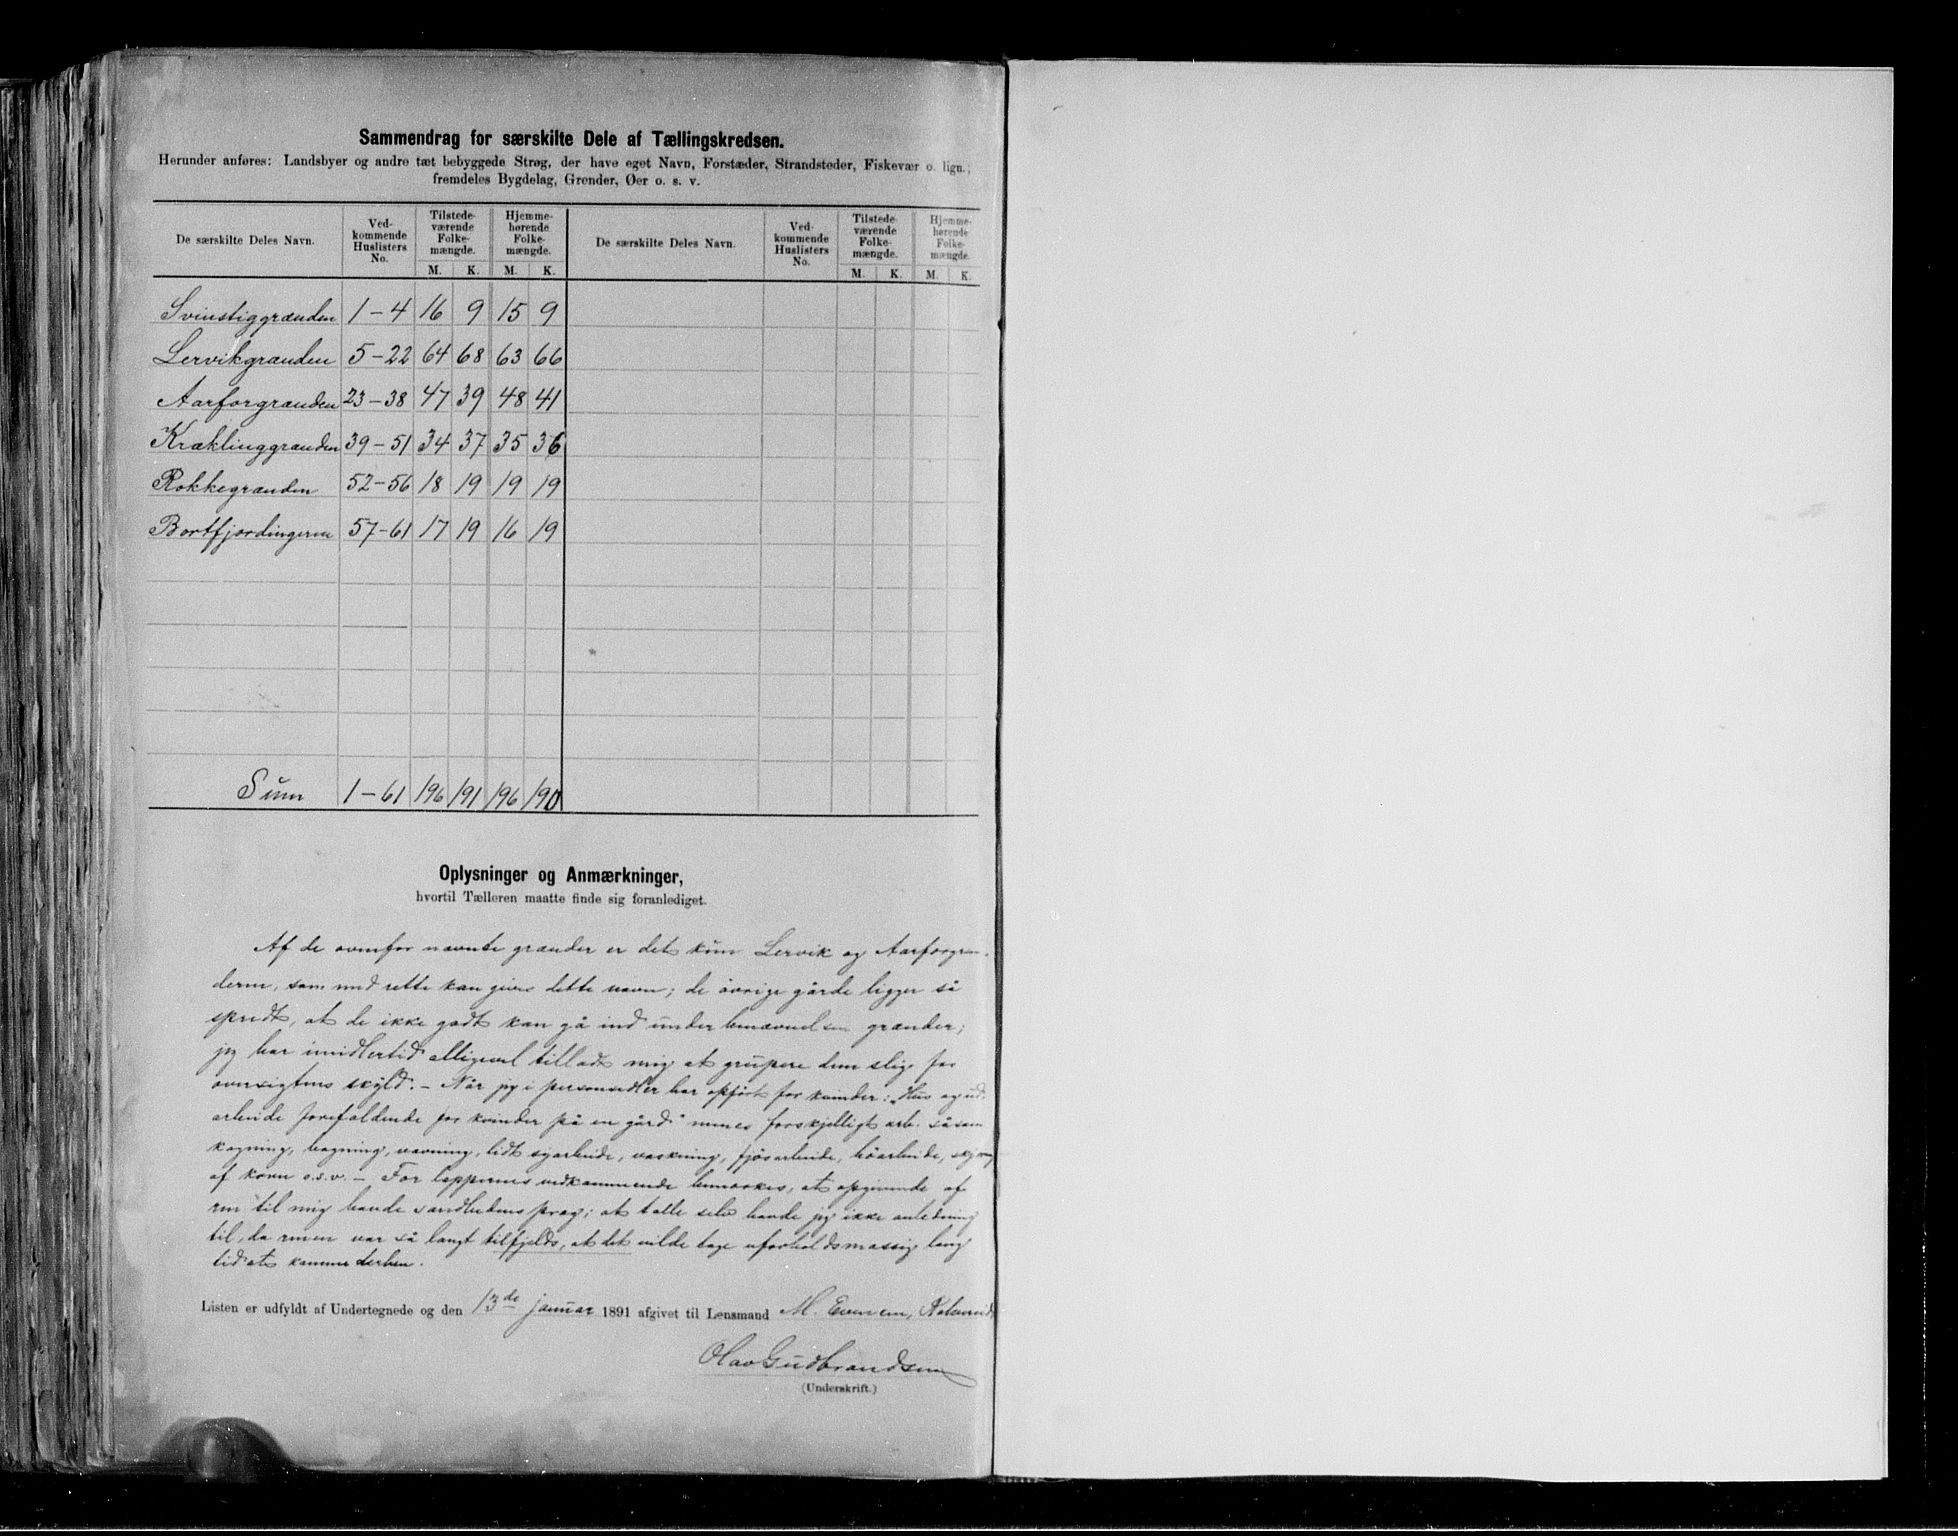 Sammendrag for særskilte Dele af Tællingskredsen.
Herunder anføres: Landsbyer og andre tæt bebyggede Strøg, der have eget Navn, Forstæder, Strandsteder, Fiskevær o. lign.;
fremdeles Bygdelag, Grender, Øer o. s. v.
De særskilte Deles Navn. Ved-kommende Huslisters No. Tilstede-værende Folke-mængde. M. K. Hjemme-hørende Folke-mængde. M. K. De særskilte Deles Navn. Ved-kommende Huslisters No. Tilstede-værende Folke-mængde. M. K. Hjemme-hørende Folke-mængde. M. K.
Svinstiggrænden 1-4 16 9 15 9
Lervikgrænden 5-22 64 68 63 66
Aarforgrænden 23-38 47 39 48 41
Kræklinggrænden 39-51 34 37 35 36
Rokkegrænden 52-56 18 19 19 19
Bortfjordingerne 57-61 17 19 16 19
Sum 1-61 196 191 196 190
Oplysninger og Anmærkninger,
hvortil Tælleren maatte finde sig foranlediget.
Af de ovenfor nævnte grænder er det kun Lervik og Aarforgræn-
derne, som med rette kan gives dette navn; de øvrige gårde ligger så
spredt, at de ikke godt kan gå ind under benævnelsen grænder;
jeg har imidlertid alligevel tilladt mig at grupere dem slig for
oversigtens skyld. - Når jeg i personsedler har opført for kvinder: "Hus og ud-
arbeide forefaldende for kvinder på en gård" menes forskjelligt arb. såsom
kogning, bagning, vævning, lidt syarbeide, vaskning, fjøsarbeide, høarbeide, skjæring
af korn o.s.v. - For lappernes vedkommende bemærkes, at opgivende af
ren til mig havde sandhedens præg; at tælle selv havde jeg ikke anledning
til, da renen var så langt tilfjelds, at det vilde tage uforholdsmæssig lang
tid at komme derhen.
Listen er udfyldt af Undertegnede og den 13de januar 1891 afgivet til Lensmand M. Evensen,
Olav Gudbrandsen
(Underskrift.)